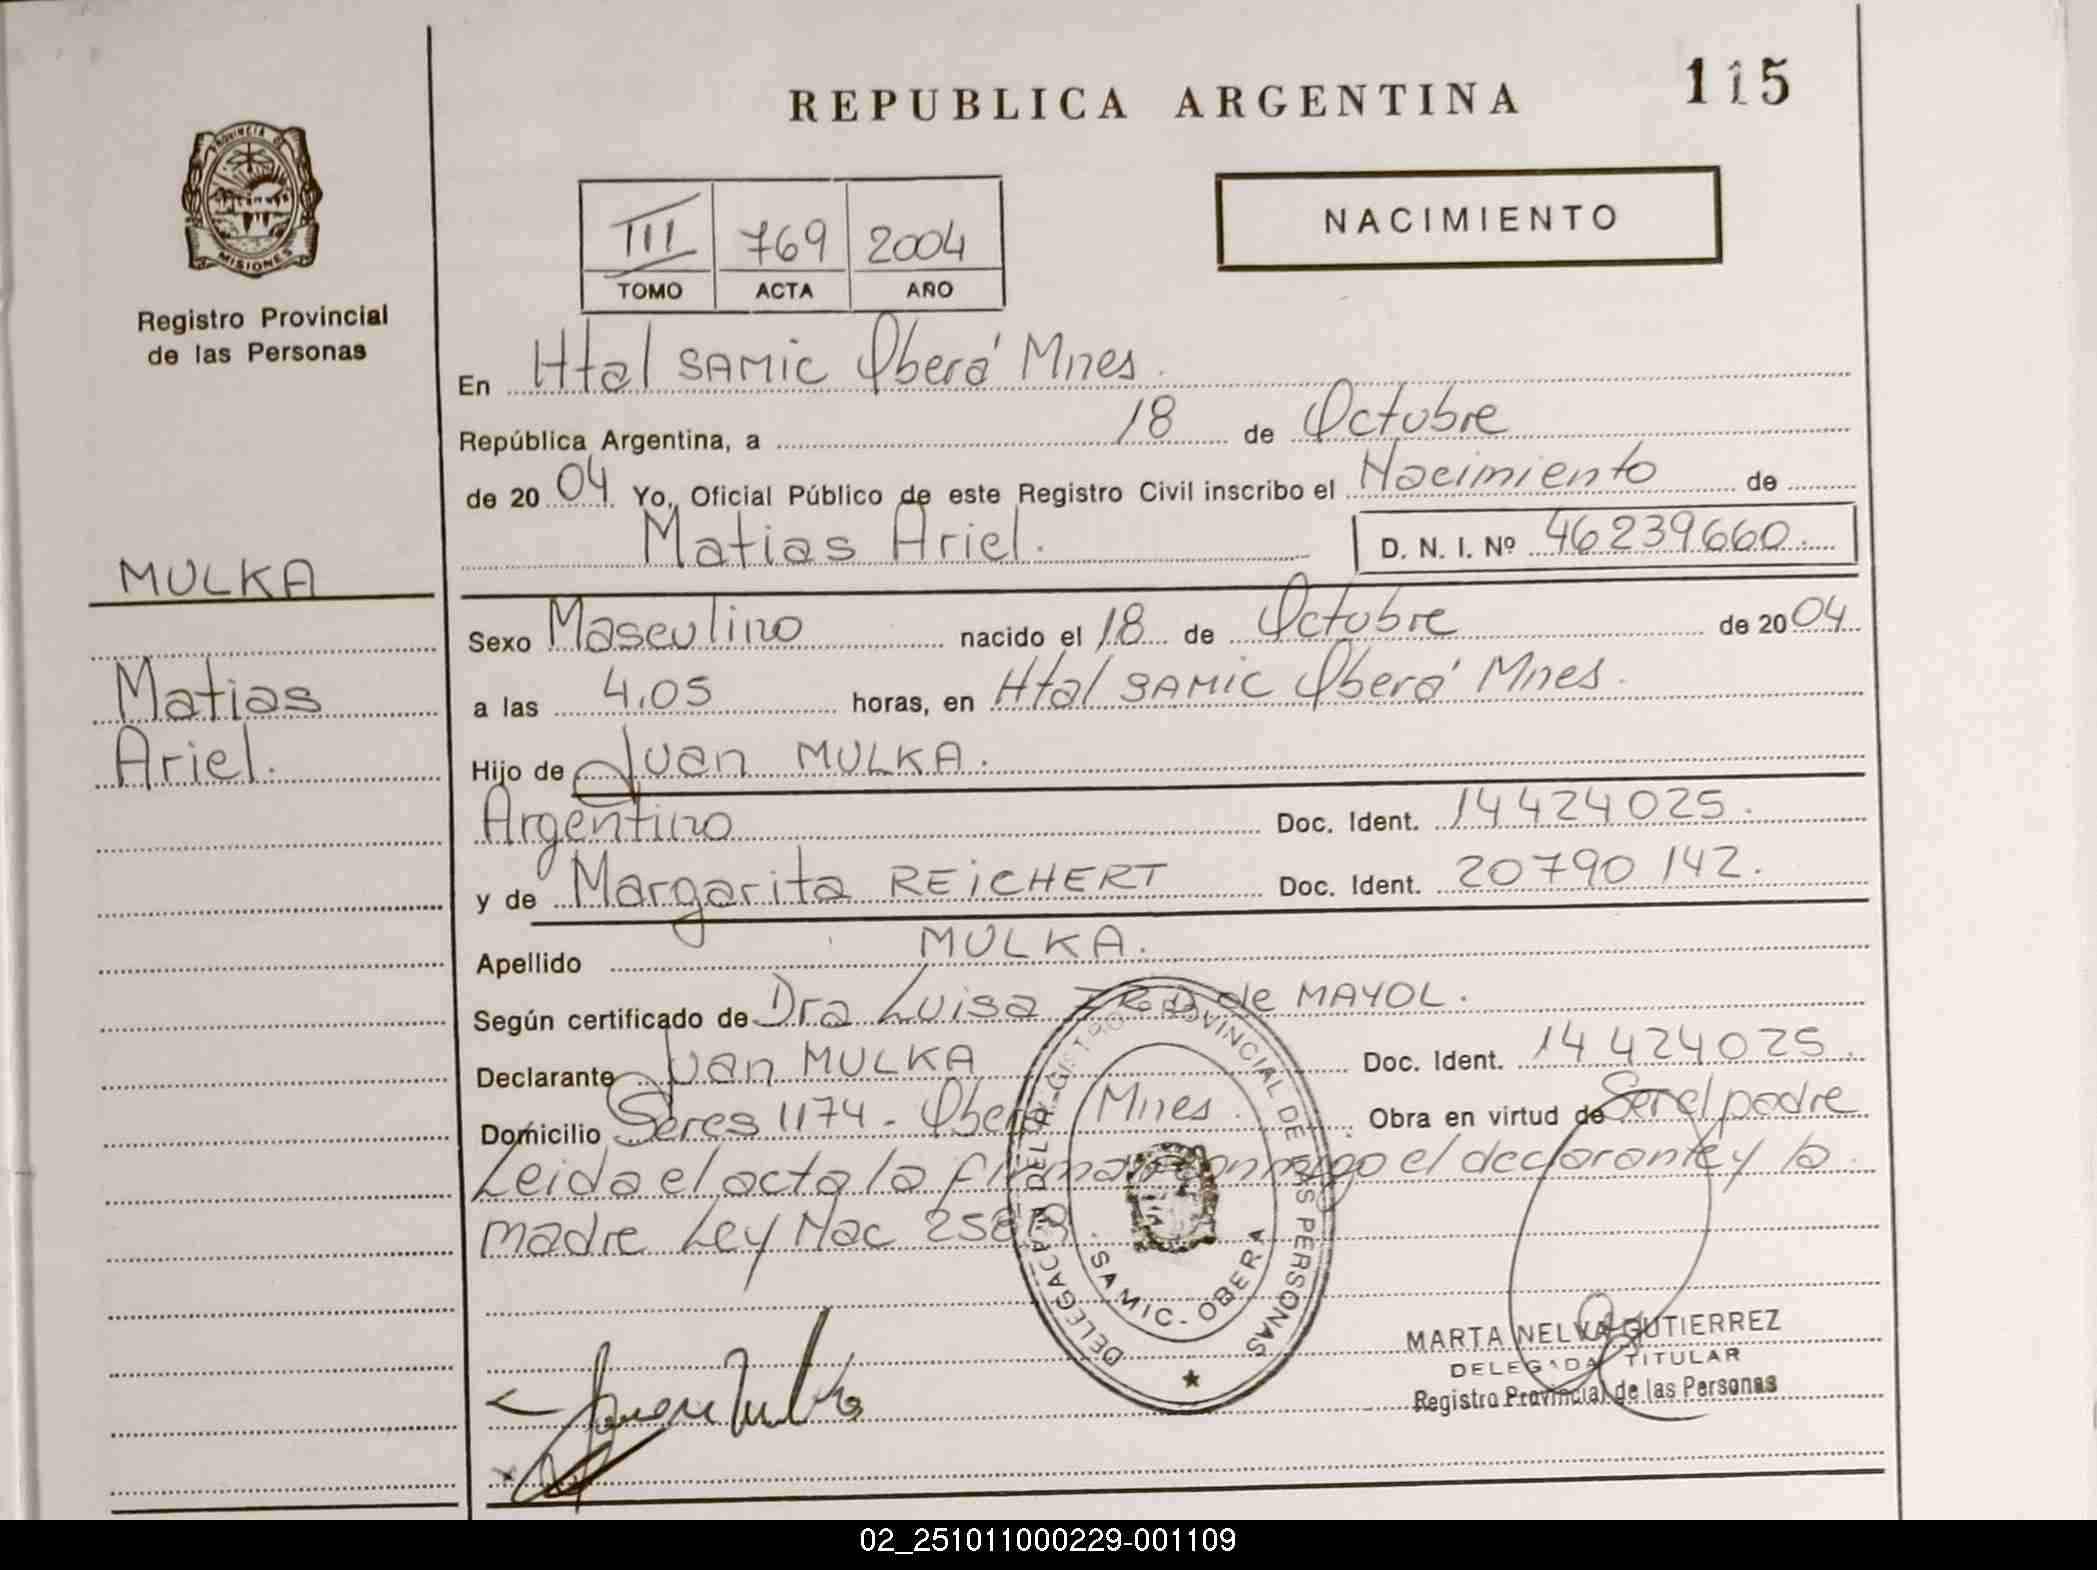 REPUBLICA ARGENTINA
115
PROVINCIA D
MISIONES
Registro Provincial
de las Personas
III 769 2004
TOMO ACTA AÑO
NACIMIENTO
En Htal SAMIC Oberá Mnes.
República Argentina, a 18 de Octubre
de 2004. Yo, Oficial Público de este Registro Civil inscribo el Nacimiento de
Matias Ariel. D. N. I. Nº 46239660.
MULKA
Matias
Ariel.
Sexo Masculino nacido el 18 de Octubre de 2004
a las 4,05 horas, en Htal SAMIC Oberá Mnes.
Hijo de Juan MULKA.
Argentino Doc. Ident. 14424025.
y de Margarita REICHERT Doc. Ident. 20790142.
Apellido MULKA.
Según certificado de Dra Luisa de MAYOL.
Declarante Juan MULKA Doc. Ident. 14424025.
Domicilio Seres 1174 - Obera Mnes. Obra en virtud de Ser el padre
Leida el acta la firman conmigo el declarante y la
madre Ley Nac
DELEGACION DEL REGISTRO PROVINCIAL DE LAS PERSONAS
SAMIC - OBERA
MARTA NELVA GUTIERREZ
DELEGADA TITULAR
Registro Provincial de las Personas
Juan Mulka
02_251011000229-001109